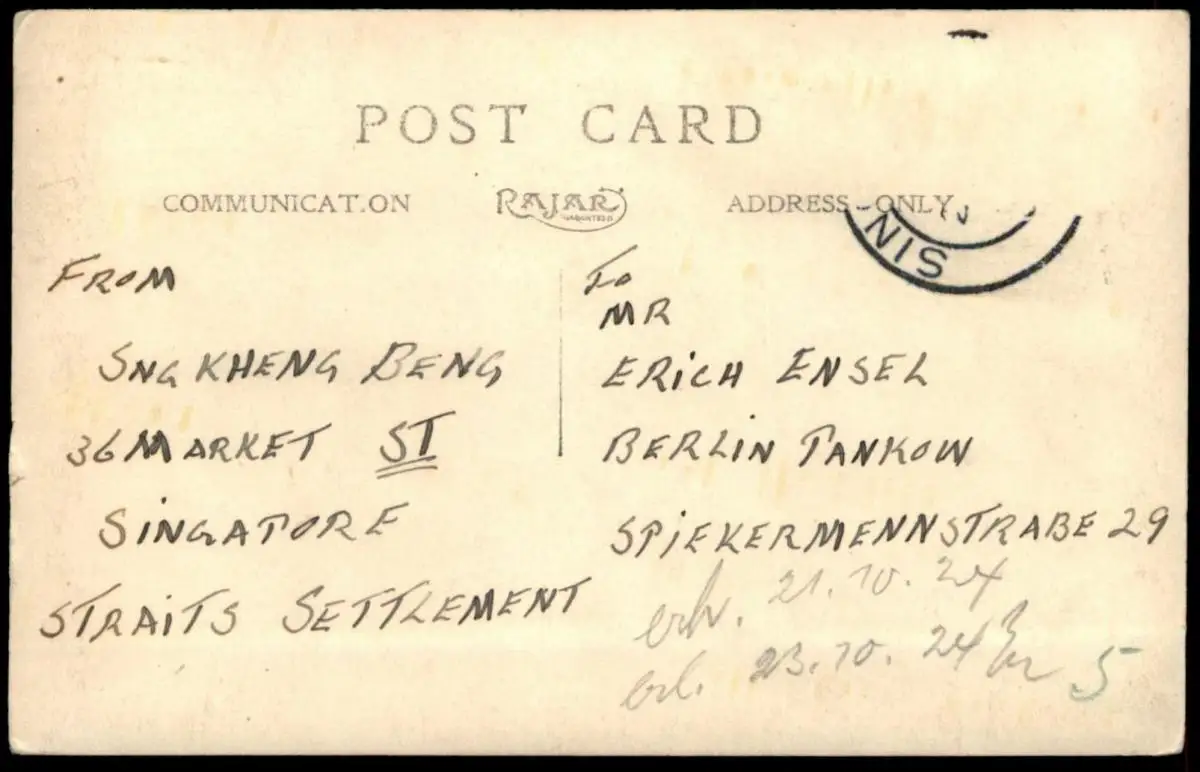 POST CARD
COMMUNICAT.ON
RAJAR
ADDRESS ONLY
SIN
FROM
SNG KHENG BENG
36 MARKET ST
SINGAPORE
STRAITS SETTLEMENT
To
MR
ERiCH ENSEL
BERLiN PANKOW
SPiEKERMENNSTRABE 29
erh. 21.10.24
erl. 23.10.24
5